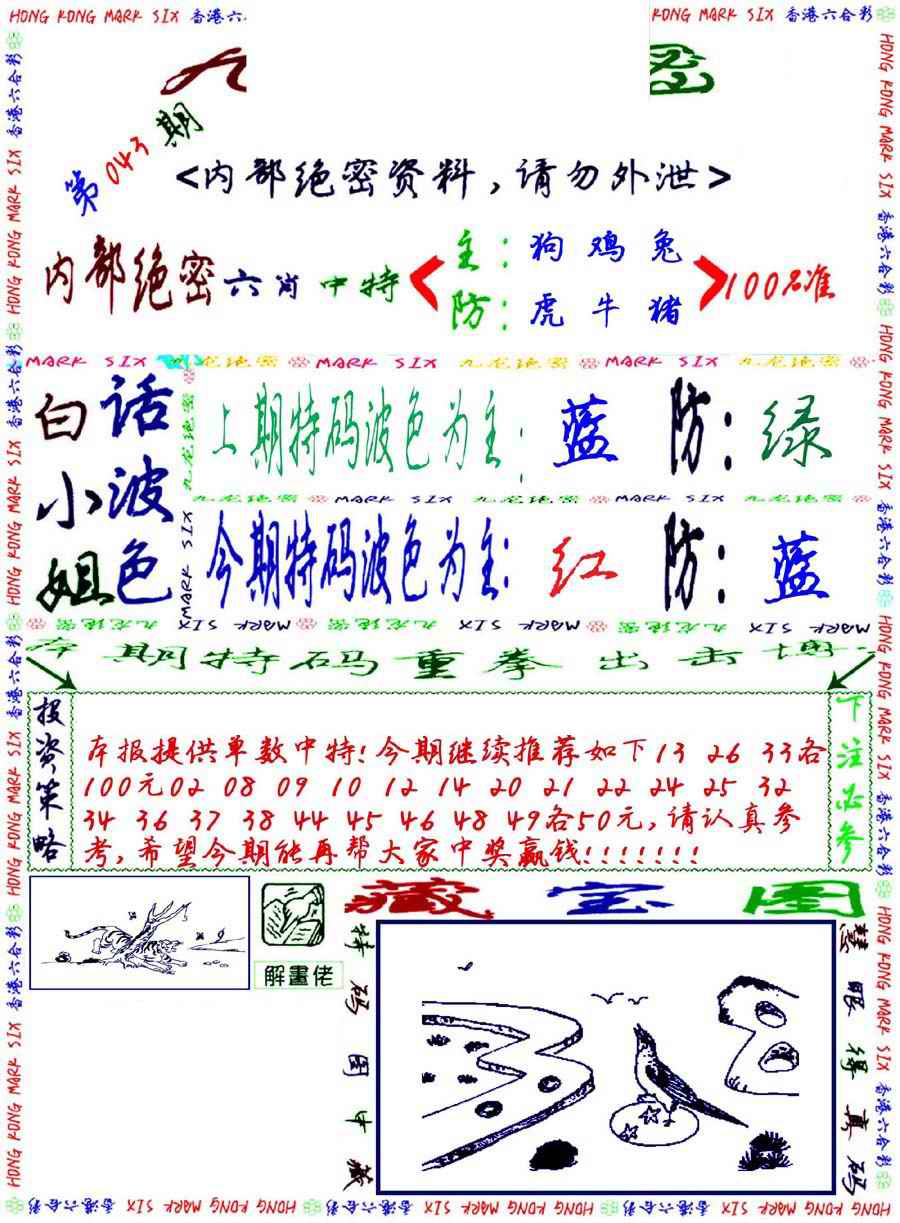 HONG KONG MARK SIX 香港六
KONG MARK SIX 香港六合彩
九
密
第043期
<内部绝密资料，请勿外泄>
内部绝密六肖中特
主：狗 鸡 兔
防：虎 牛 猪
100%准
MARK SIX 九龙绝密 MARK SIX 九龙绝密 MARK SIX 九龙绝密
白话小波姐色
上期特码波色为主：蓝 防：绿
九龙绝密 MARK SIX 九龙绝密 MARK SIX 九龙绝密
今期特码波色为主：红 防：蓝
九龙绝密 MARK SIX 九龙绝密 MARK SIX 九龙绝密 MARK SIX
本期特码重拳出击
投资策略
本报提供单数中特!今期继续推荐如下13 26 33各
100元02 08 09 10 12 14 20 21 22 24 25 32
34 36 37 38 44 45 46 48 49各50元,请认真参
考,希望今期能再帮大家中奖赢钱!!!!!!!
下注必参
解畫佬
藏宝图
特码图中藏
慧眼得真码
HONG KONG MARK SIX 香港六合彩